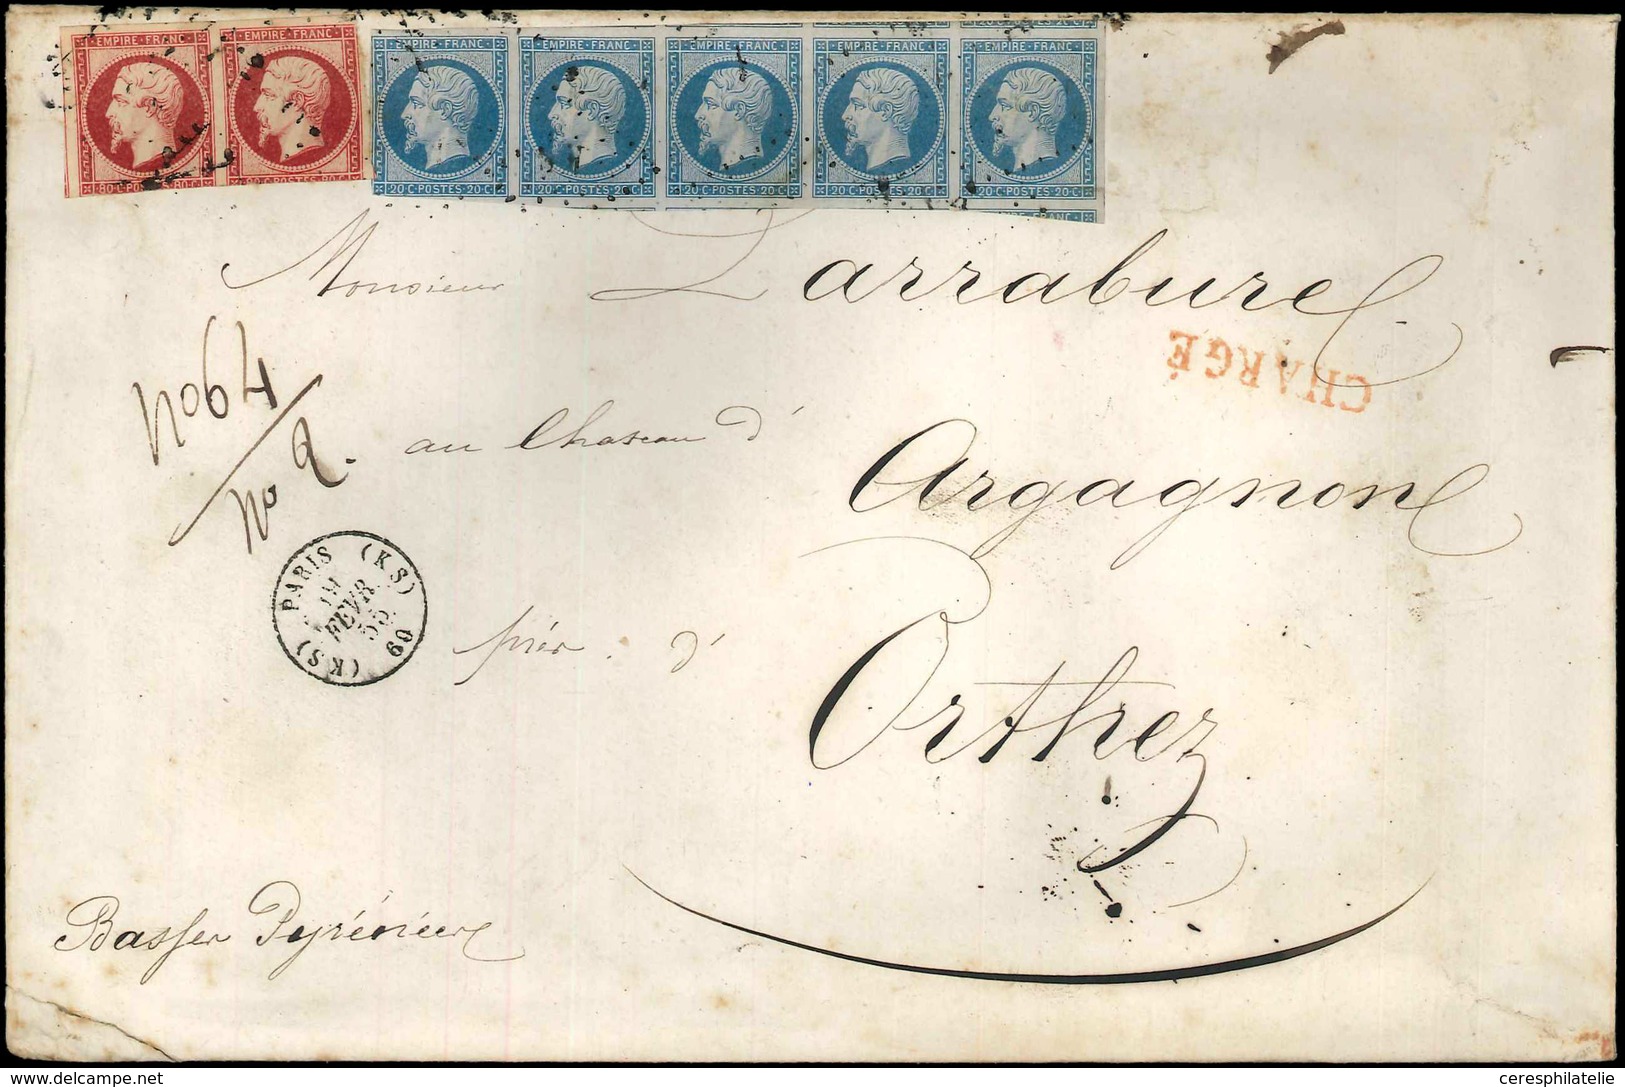 EMPIRE FRANC EMPIRE FRANC EMPIRE·FRANC· EMPIRE·FRANC· EMPIRE·FRANC· EMPIRE·FRANC· EMPIRE·FRANC·
80·C·POSTES·80·C· 80·C·POSTES·80·C· 20·C·POSTES·20·C· 20·C·POSTES·20·C· 20·C·POSTES·20·C· 20·C·POSTES·20·C· 20·C·POSTES·20·C·
Monsieur Larrabure
CHARGÉ
No 64
No 2.
au Chateau d'
Argagnon
PARIS (KS)
19
FEVR.
55
(KS) 60
près d'
Orthez
Basses Pyrénées
ceresphilatelie